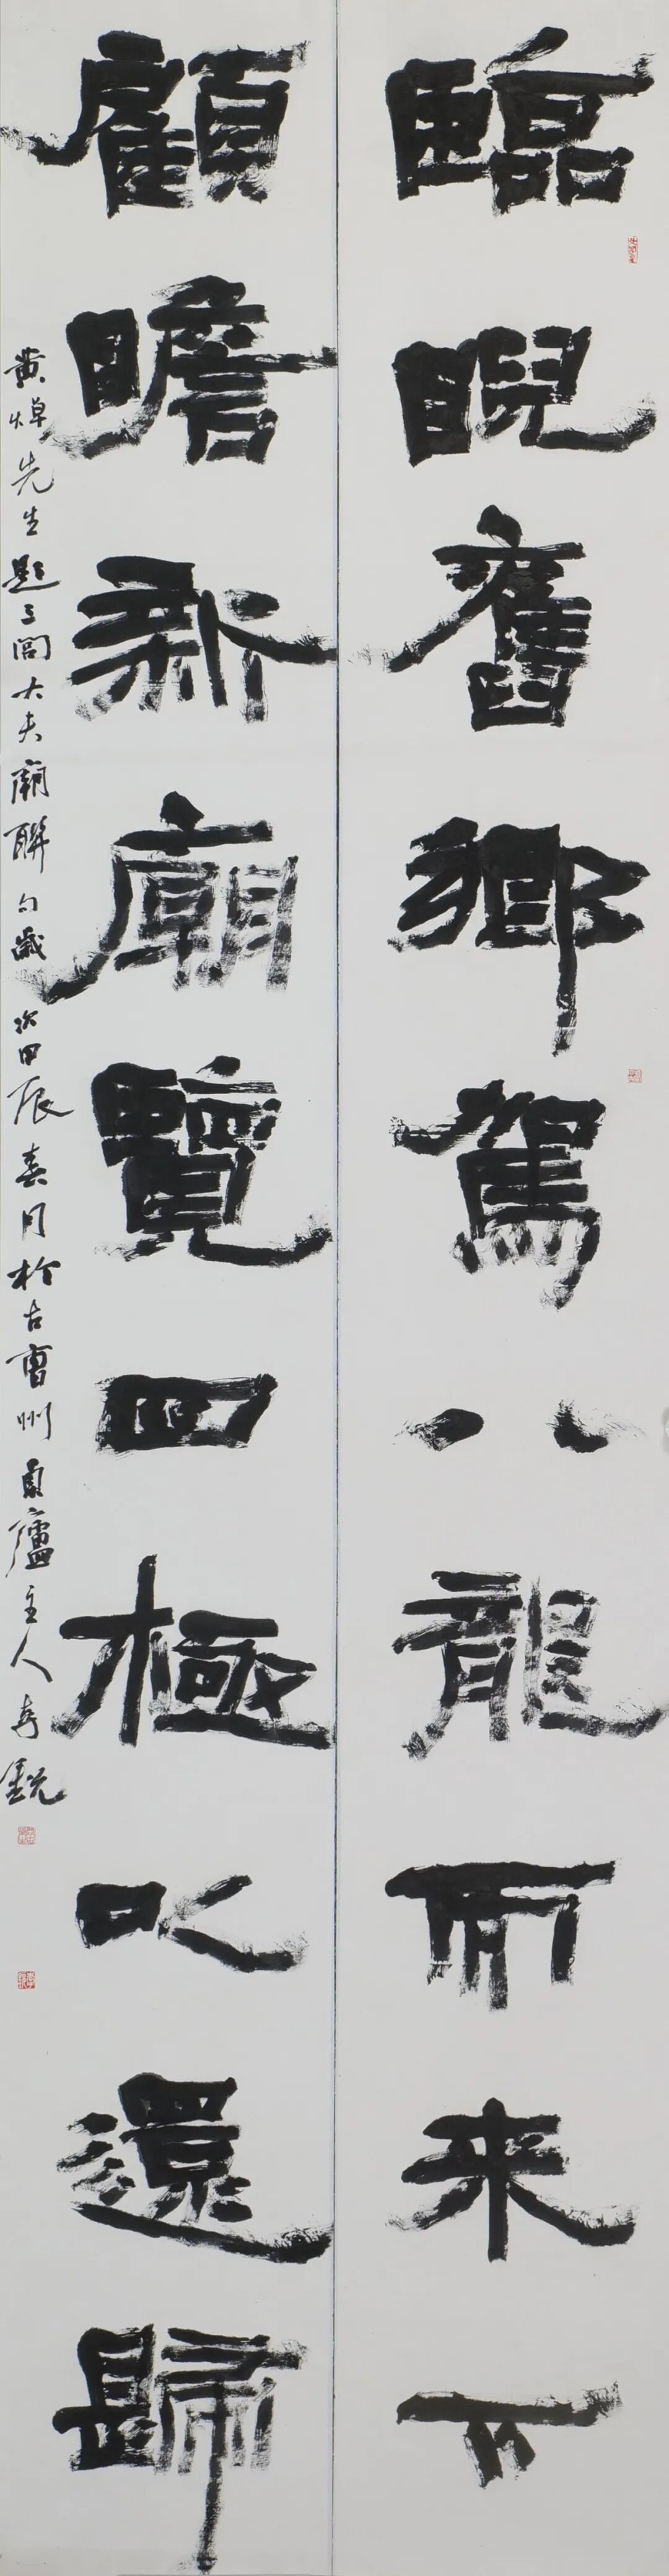 臨睨舊鄉駕八龍而来下
顧瞻新廟覽四極以還歸
黄焯先生題三閭大夫廟聯句歲次甲辰春月於古曹州
廬主人李銳